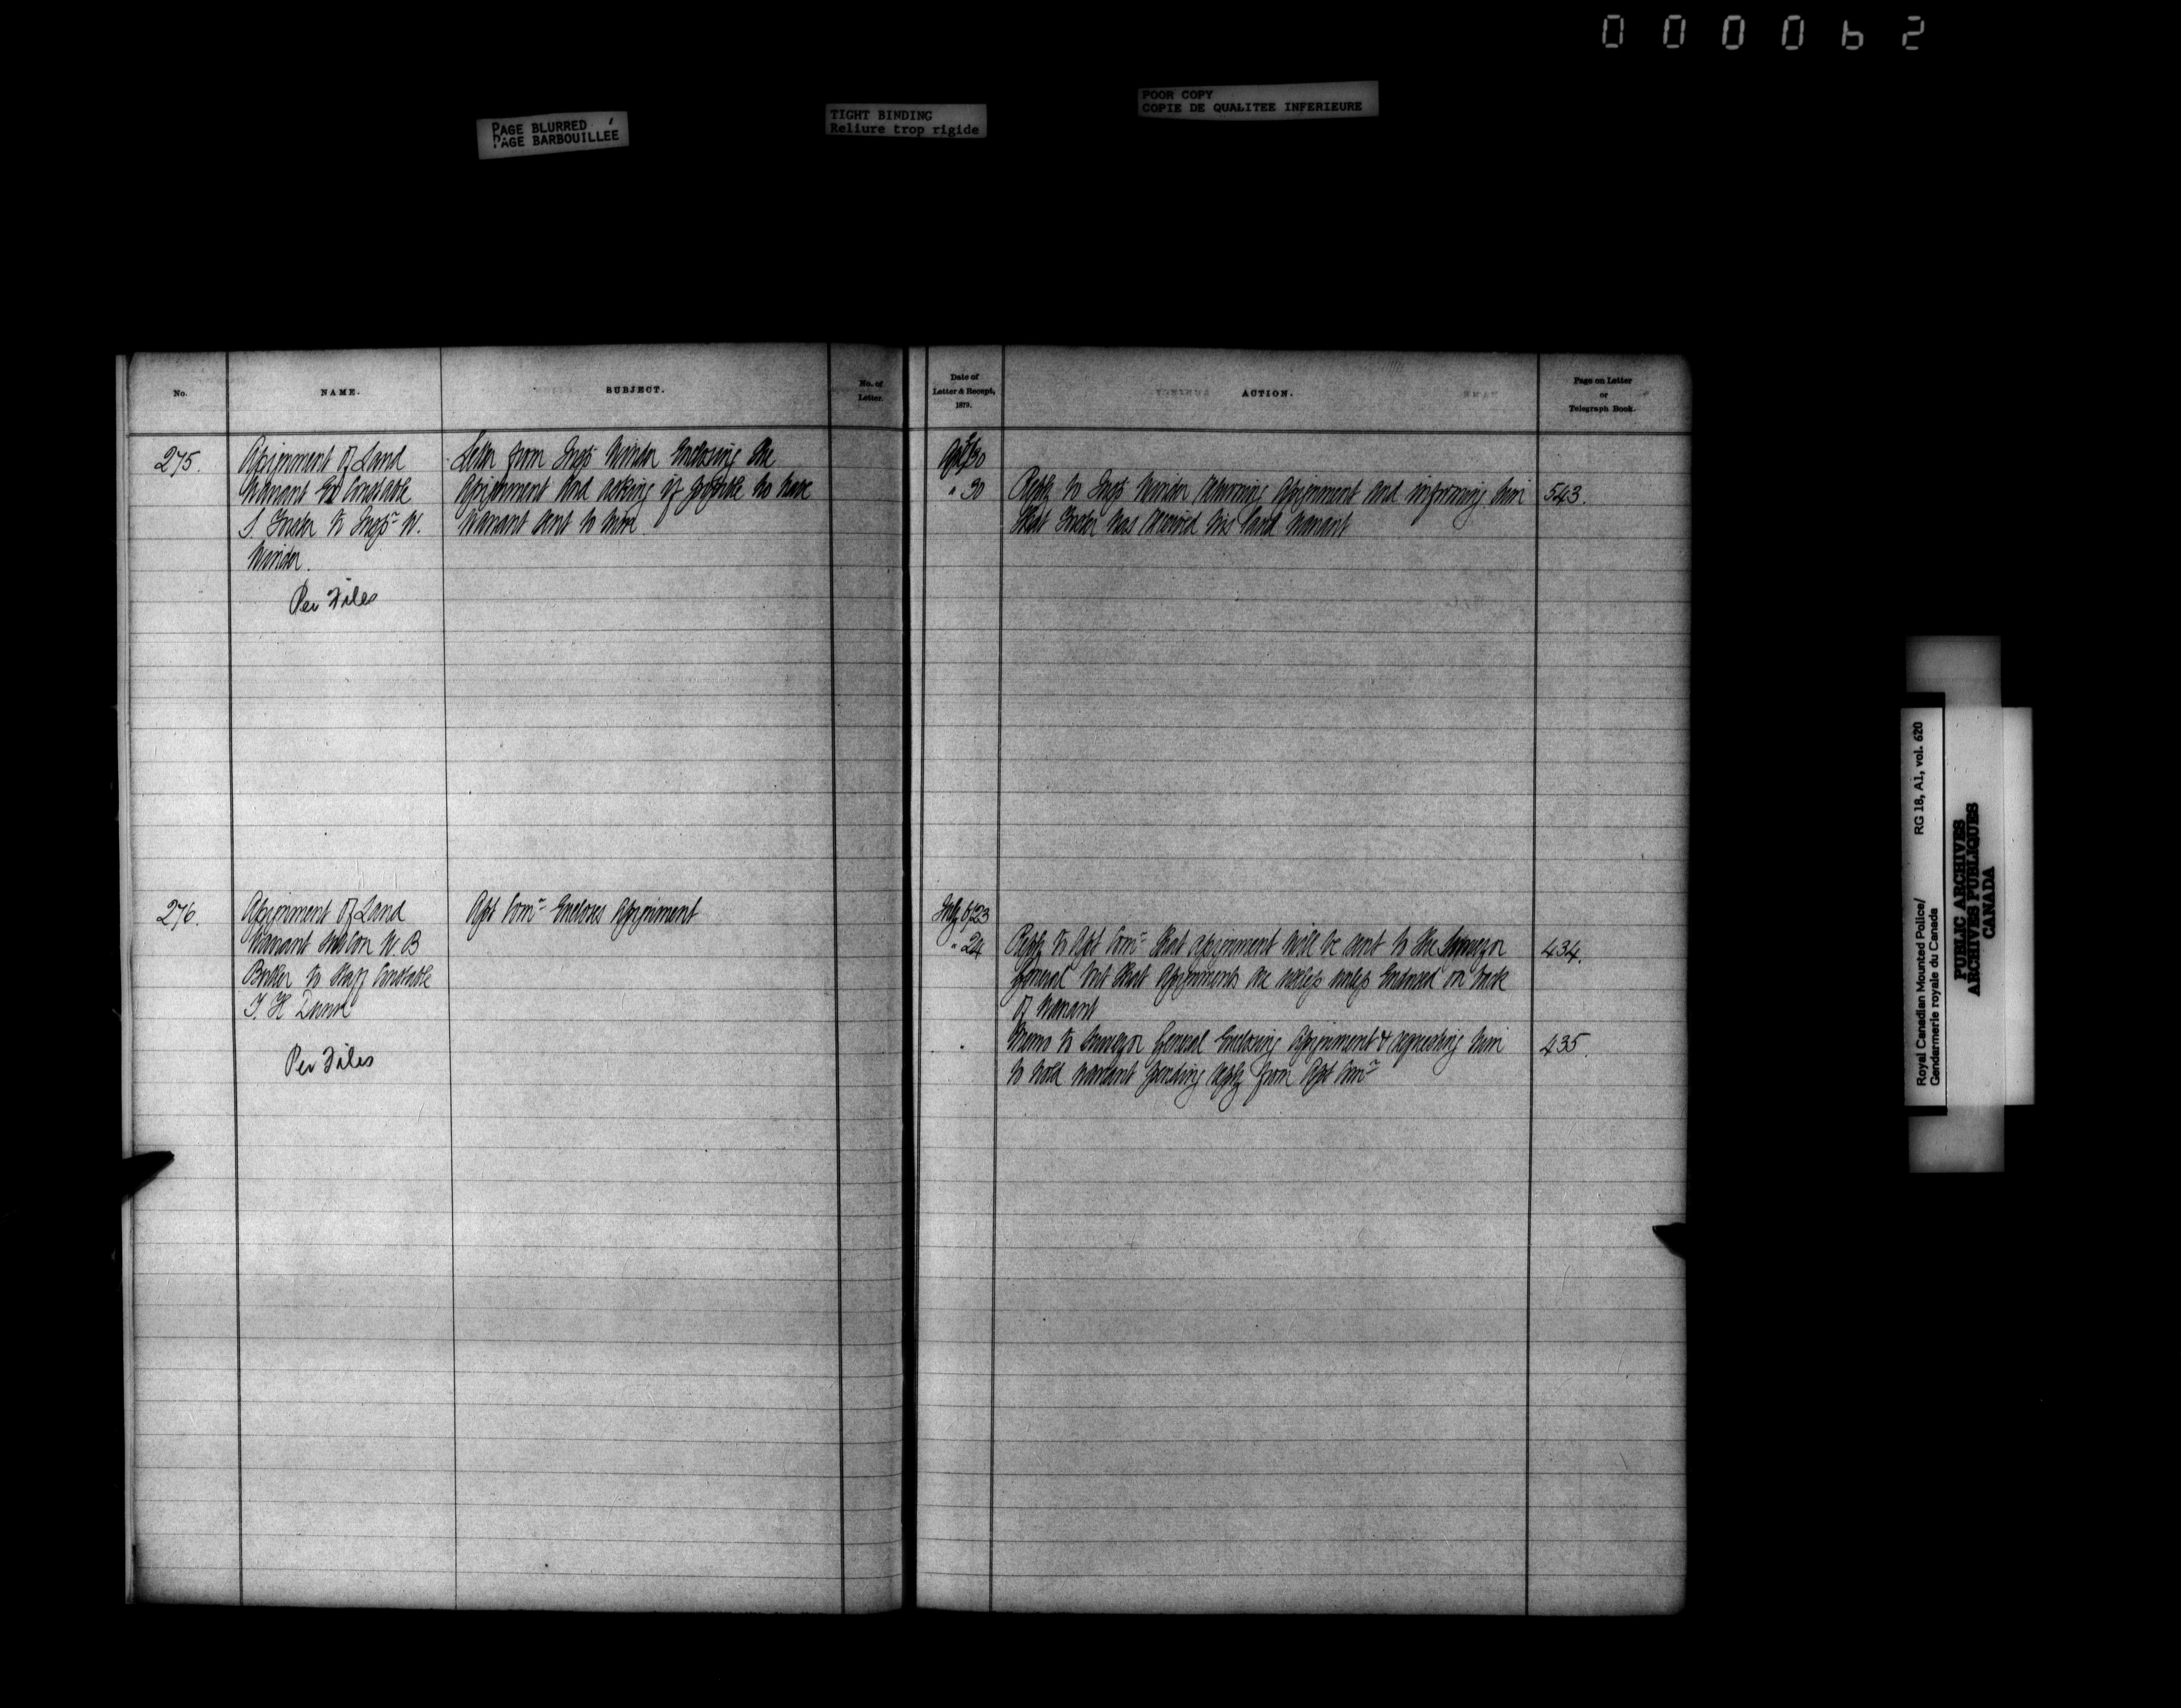 000062
PAGE BLURRED
PAGE BARBOUILLEE
TIGHT BINDING
Reliure trop rigide
POOR COPY
COPIE DE QUALITEE INFERIEURE
No.
NAME.
SUBJECT.
No. of
Letter.
Date of
Letter & Receipt,
1879.
ACTION.
Page on Letter
or
Telegraph Book.
275.
Assignment of Land
Warrant Ex Constable
S. to Inspr W.
Winder.
Per Files
Letter from Inspr Winder Enclosing the
Assignment and asking if possible to have
Warrant sent to him
30
" 30
Reply to Inspr Winder returning Assignment and informing him
that has received his land Warrant
543.
276.
Assignment of Land
Warrant W. B
to Staff Constable
T. H Dunne
Per Files
Asst Comr Encloses Assignment
July 6/23
" 24
Reply to Asst Comr that assignment will be sent to the Surveyor
General but that Assignments are useless unless Endorsed on back
of Warrant
434.
Memo to Surveyor General Enclosing Assignment & requesting him
to hold warrant pending reply from Asst Comr
435.
Royal Canadian Mounted Police/
Gendarmerie royale du Canada
RG 18, A1, vol. 620
PUBLIC ARCHIVES
ARCHIVES PUBLIQUES
CANADA